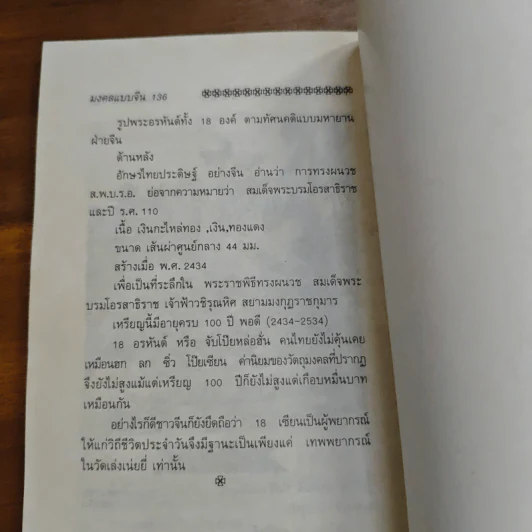 มงคลแบบจีน 136
รูปพระอรหันต์ทั้ง 18 องค์ ตามทัศนคติแบบมหายาน
ฝ่ายจีน
ด้านหลัง
อักษรไทยประดิษฐ์ อย่างจีน อ่านว่า การทรงผนวช
ส.พ.บ.ร.อ. ย่อจากความหมายว่า สมเด็จพระบรมโอรสาธิราช
และปี ร.ศ. 110
เนื้อ เงินกะไหล่ทอง ,เงิน,ทองแดง
ขนาด เส้นผ่าศูนย์กลาง 44 มม.
สร้างเมื่อ พ.ศ. 2434
เพื่อเป็นที่ระลึกใน พระราชพิธีทรงผนวช สมเด็จพระ
บรมโอรสาธิราช เจ้าฟ้าวชิรุณหิศ สยามมงกุฎราชกุมาร
เหรียญนี้มีอายุครบ 100 ปี พอดี (2434-2534)
18 อรหันต์ หรือ จับโป๊ยหล่อฮั่น คนไทยยังไม่คุ้นเคย
เหมือนฮก ลก ซิ่ว โป๊ยเซียน ค่านิยมของวัตถุมงคลที่ปรากฏ
จึงยังไม่สูงแม้แต่เหรียญ 100 ปีก็ยังไม่สูงแต่เกือบหมื่นบาท
เหมือนกัน
อย่างไรก็ดีชาวจีนก็ยังยึดถือว่า 18 เซียนเป็นผู้พยากรณ์
ให้แก่วิถีชีวิตประจำวันจึงมีฐานะเป็นเพียงแค่ เทพพยากรณ์
ในวัดเล่งเน่ยยี่ เท่านั้น